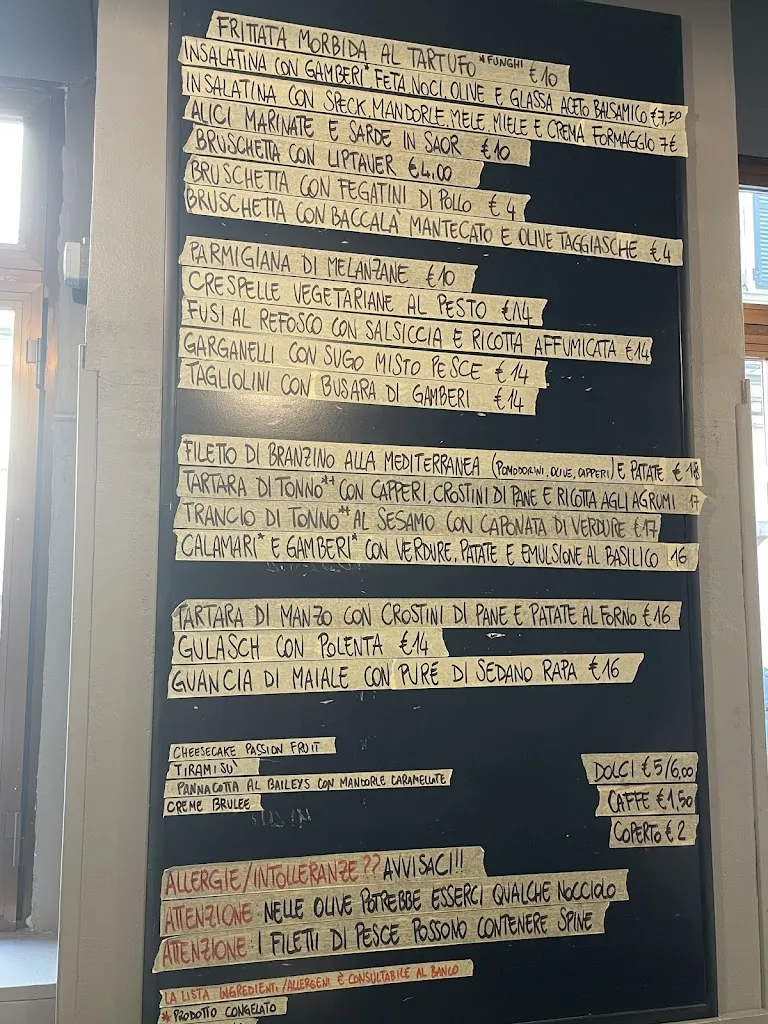 FRITTATA MORBIDA AL TARTUFO *FUNGHI €10
INSALATINA CON GAMBERI* FETA, NOCI, OLIVE E GLASSA ACETO BALSAMICO €7,50
INSALATINA CON SPECK, MANDORLE, MELE, MIELE E CREMA FORMAGGIO 7€
ALICI MARINATE E SARDE IN SAOR €10
BRUSCHETTA CON LIPTAUER €4.00
BRUSCHETTA CON FEGATINI DI POLLO €4
BRUSCHETTA CON BACCALA' MANTECATO E OLIVE TAGGIASCHE €4
PARMIGIANA DI MELANZANE €10
CRESPELLE VEGETARIANE AL PESTO €14
FUSI AL REFOSCO CON SALSICCIA E RICOTTA AFFUMICATA €14
GARGANELLI CON SUGO MISTO PESCE €14
TAGLIOLINI CON BUSARA DI GAMBERI €14
FILETTO DI BRANZINO ALLA MEDITERRANEA (POMODORINI, OLIVE, CAPPERI) E PATATE €18
TARTARA DI TONNO** CON CAPPERI, CROSTINI DI PANE E RICOTTA AGLI AGRUMI 17
TRANCIO DI TONNO** AL SESAMO CON CAPONATA DI VERDURE €17
CALAMARI* E GAMBERI* CON VERDURE, PATATE E EMULSIONE AL BASILICO 16
TARTARA DI MANZO CON CROSTINI DI PANE E PATATE AL FORNO €16
GULASCH CON POLENTA €14
GUANCIA DI MAIALE CON PURÈ DI SEDANO RAPA €16
CHEESECAKE PASSION FRUIT
TIRAMISU'
PANNACOTTA AL BAILEYS CON MANDORLE CARAMELLATE
CREME BRULEE
DOLCI €5/6,00
CAFFE €1,50
COPERTO €2
ALLERGIE/INTOLLERANZE ?? AVVISACI!!
ATTENZIONE: NELLE OLIVE POTREBBE ESSERCI QUALCHE NOCCIOLO
ATTENZIONE: I FILETTI DI PESCE POSSONO CONTENERE SPINE
LA LISTA INGREDIENTI/ALLERGENI È CONSULTABILE AL BANCO
*PRODOTTO CONGELATO